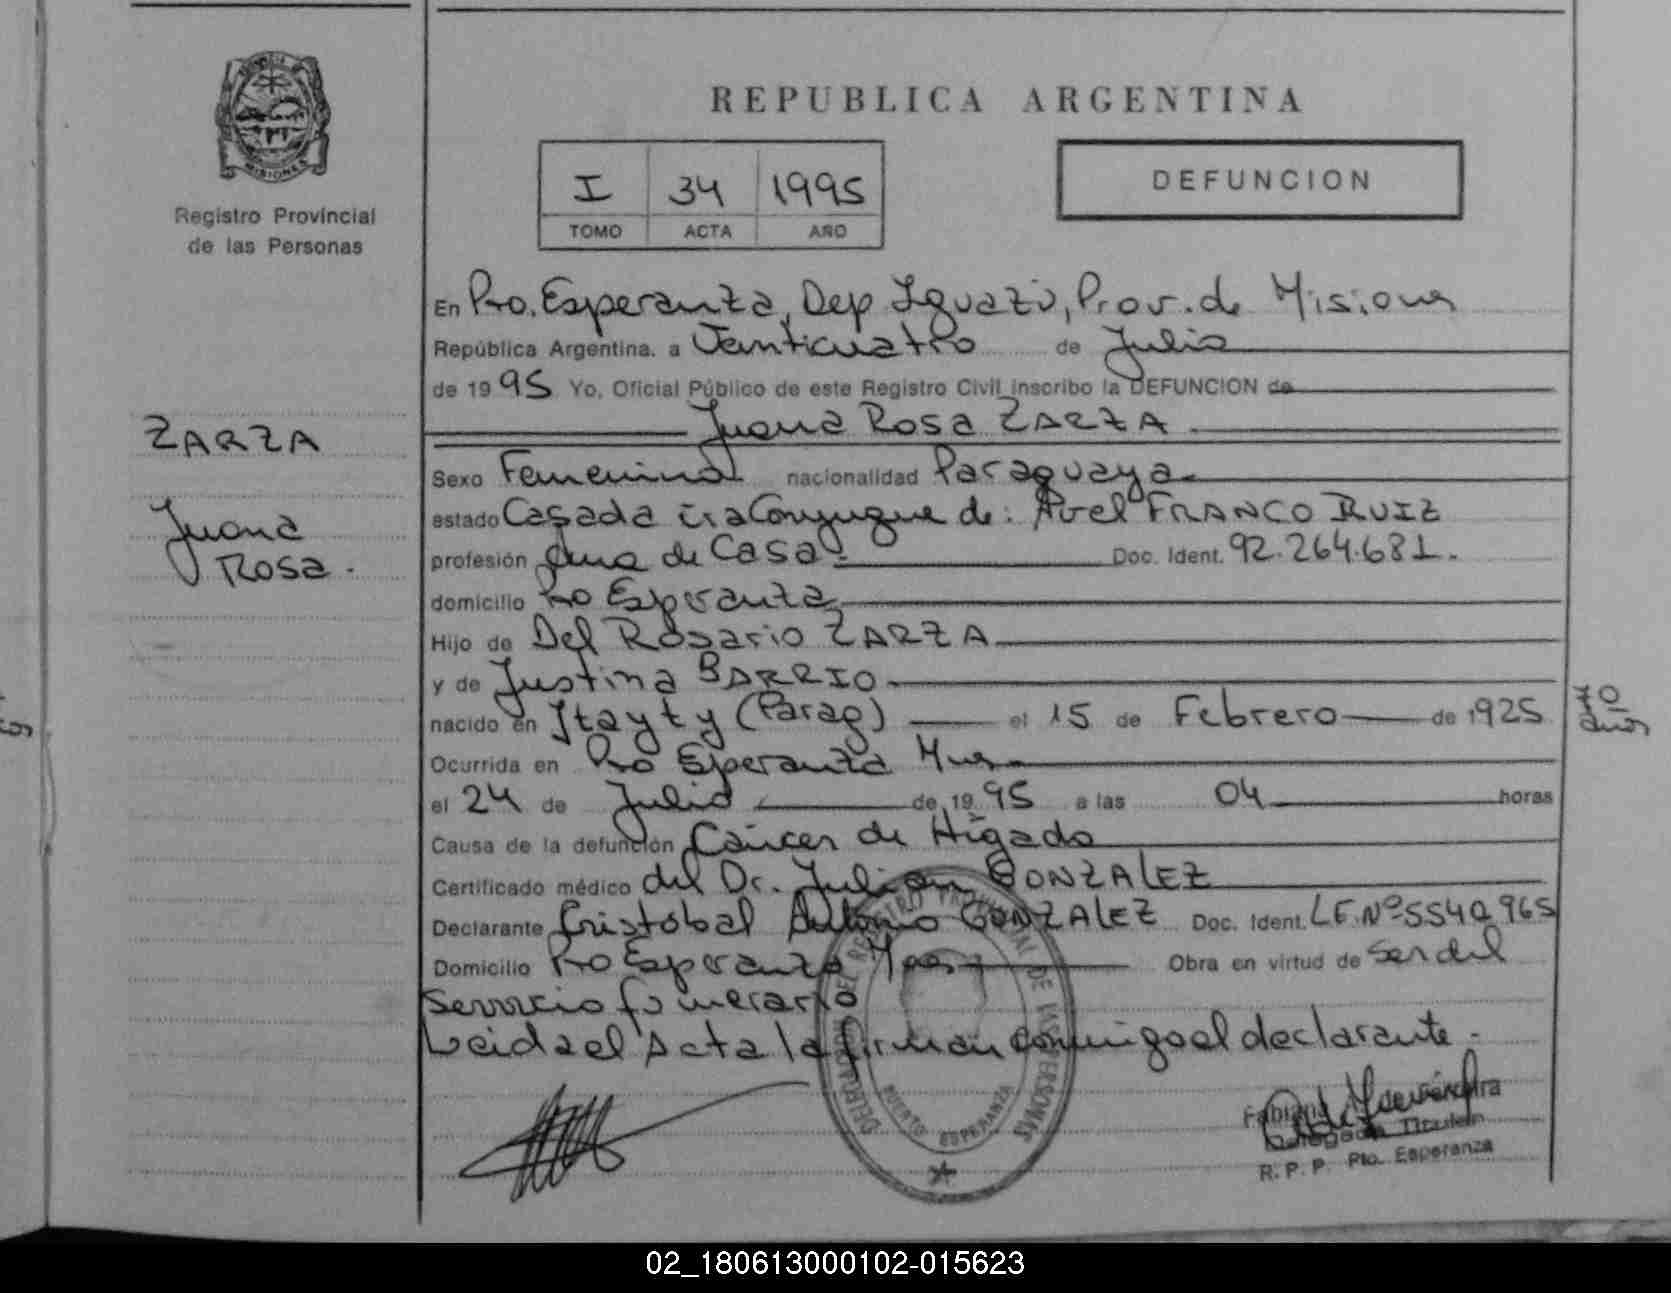 REPUBLICA ARGENTINA
MISIONES
Registro Provincial
de las Personas
I 34 1995
TOMO ACTA AÑO
DEFUNCION
ZARZA
Juana
Rosa.
En Pto. Esperanza, Dep Iguazú, Prov. de Misiones
República Argentina, a Veinticuatro de Julio
de 1995 Yo, Oficial Público de este Registro Civil inscribo la DEFUNCION de
Juana Rosa ZARZA.
Sexo Femenino nacionalidad Paraguaya
estado Casada Conyugue de: Avel FRANCO RUIZ
profesión Ama de Casa. Doc. Ident. 92.264.681.
domicilio Pto Esperanza
Hijo de Del Rosario ZARZA
y de Justina BARRIO
nacido en Itayty (Parag) el 15 de Febrero de 1925
70
años
Ocurrida en Pto Esperanza Mnes
el 24 de Julio de 1995 a las 04 horas
Causa de la defunción Cáncer de Hígado
Certificado médico del Dr. Julian GONZALEZ
Declarante Cristóbal Antonio GONZALEZ Doc. Ident. LE.Nº5540965
Domicilio Pto Esperanza Mnes Obra en virtud de Ser del
Servicio funerario
Leida el Acta la firman conmigo el declarante.
DELEGACION DEL REGISTRO PROVINCIAL DE LAS PERSONAS
PUERTO ESPERANZA
Delegada Titular
R. P. P. Pto. Esperanza
02_180613000102-015623